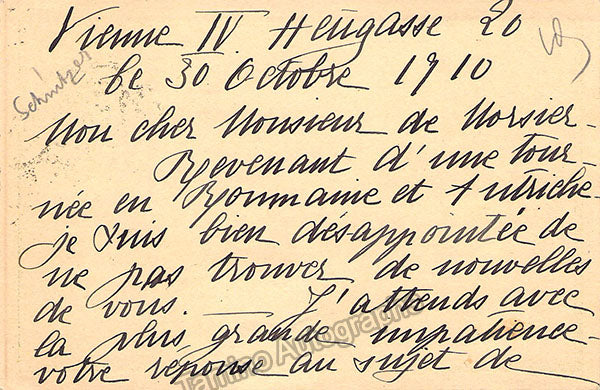 Vienne IV Heugasse 20
le 30 Octobre 1910
Schnitzer
Mon cher Monsieur de Morsier-
Revenant d'une tour-
née en Roumanie et Autriche-
je suis bien désappointée de
ne pas trouver de nouvelles
de vous. — J'attends avec
la plus grande impatience
votre réponse au sujet de
Tamino Autographs